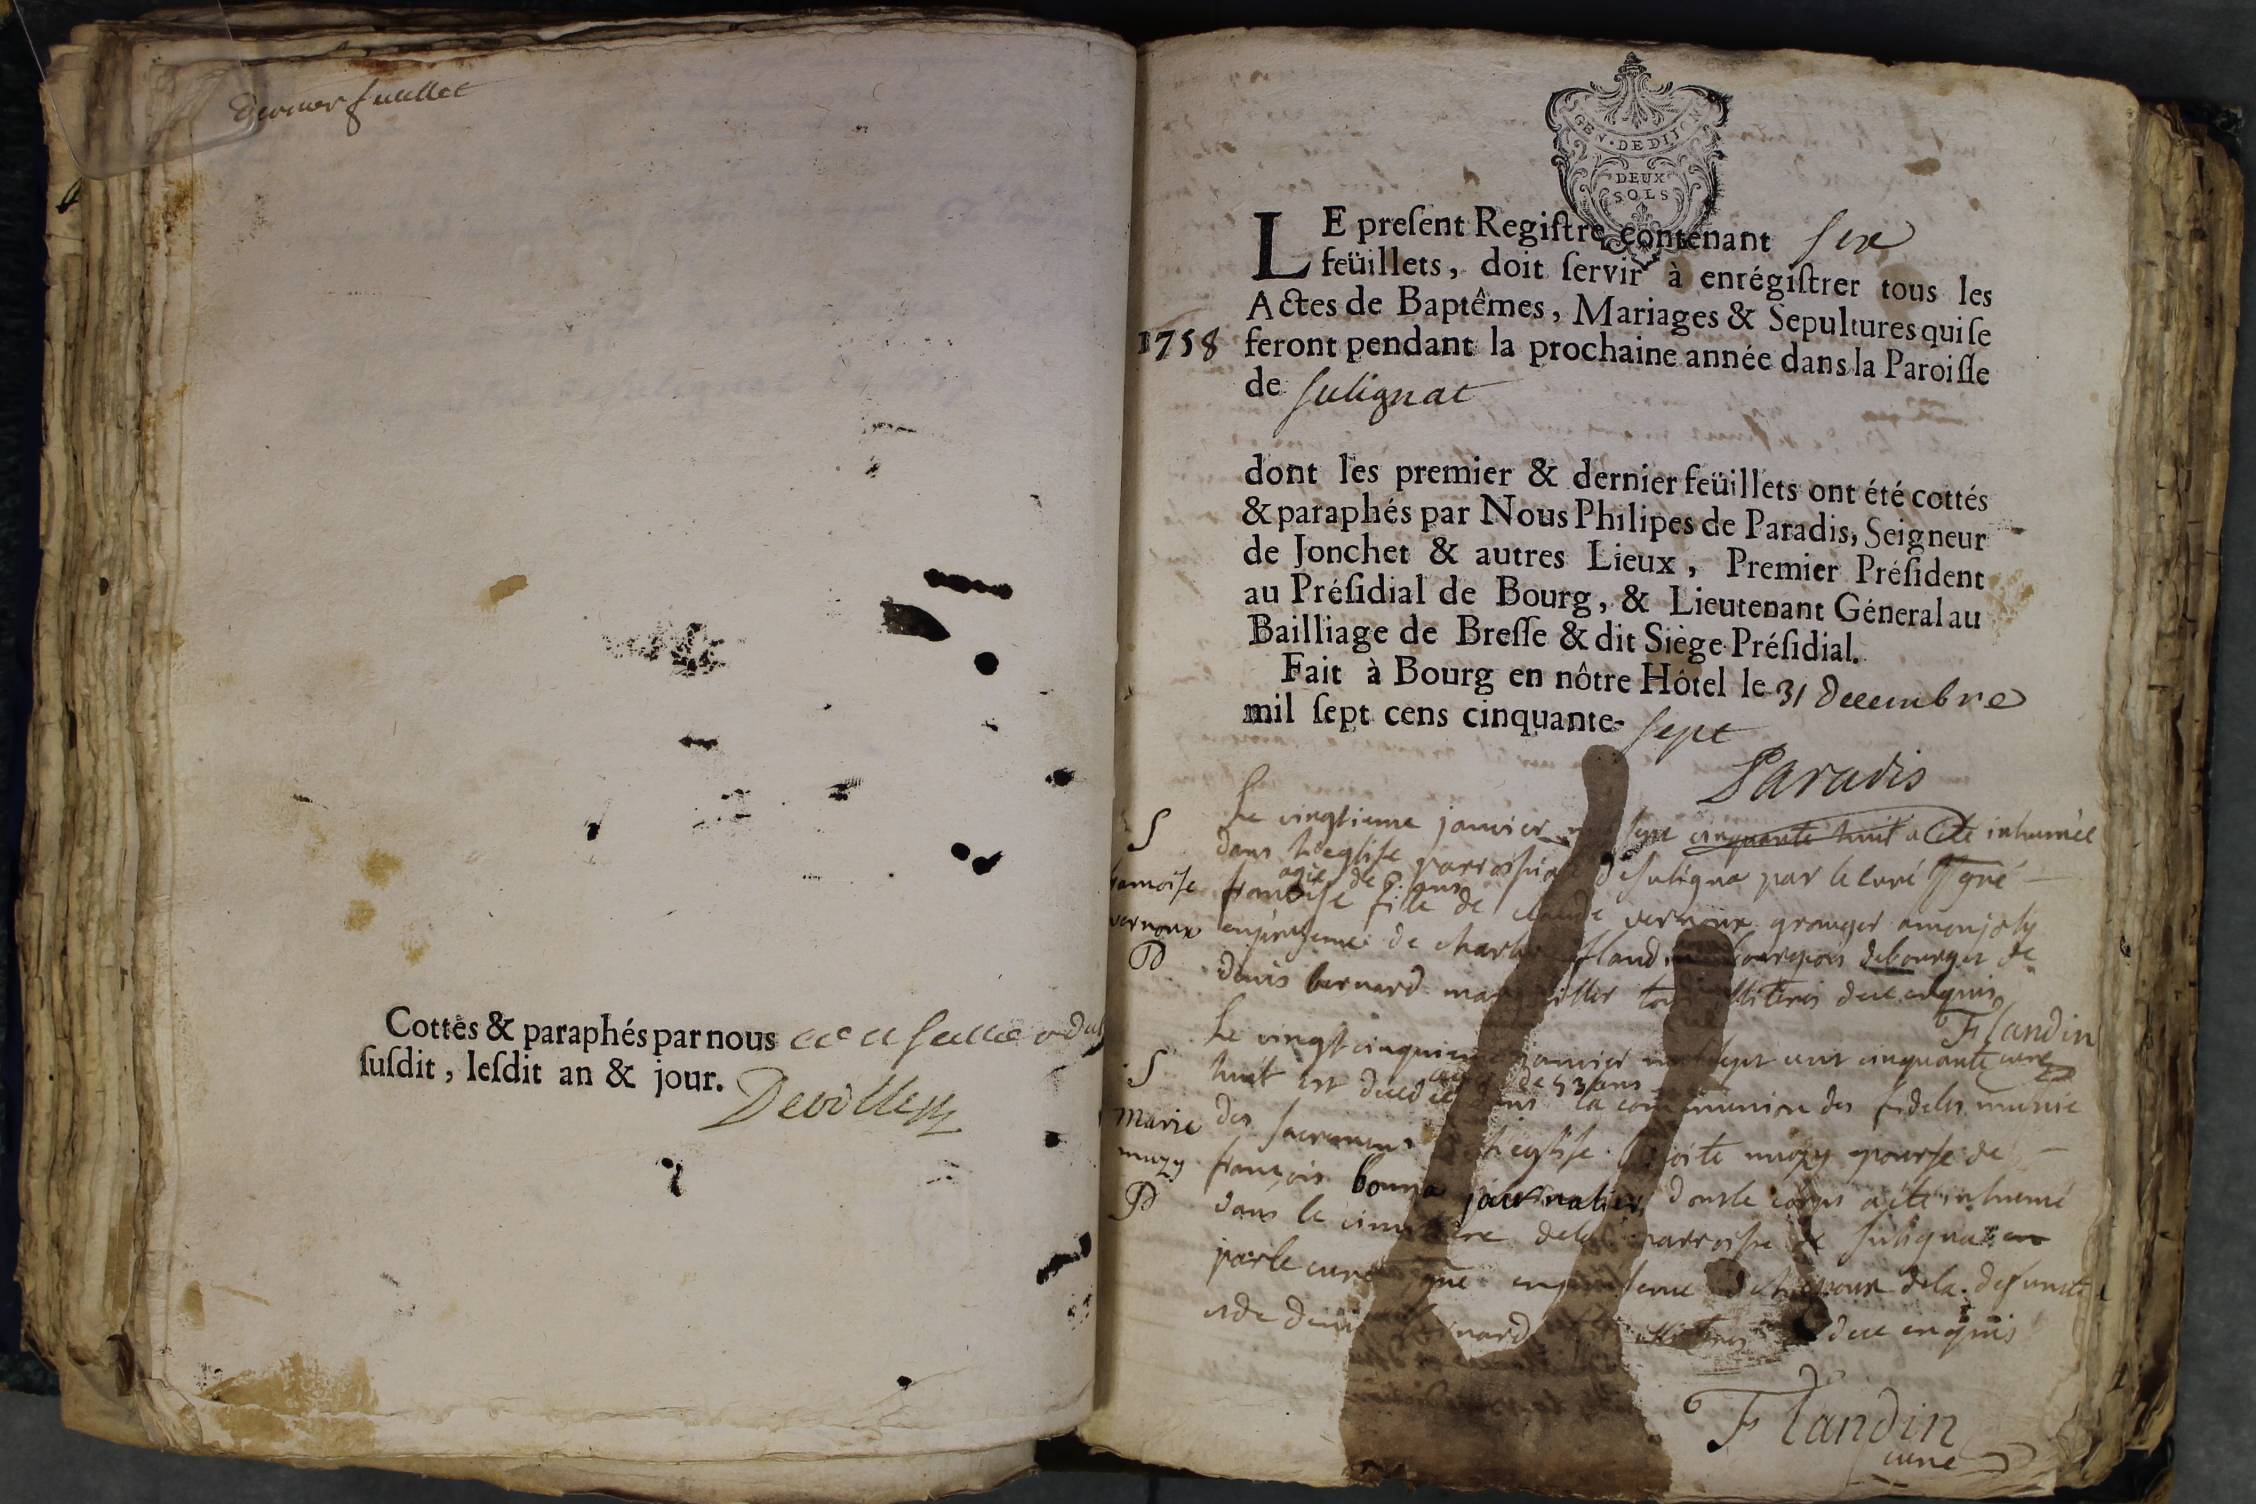 dernier feuillet
Cottés & paraphés par nous
susdit, lesdit an & jour.
GEN · DE DIJON
DEUX
SOLS
LE preſent Regiſtre contenant six
feüillets, doit ſervir à enrégiſtrer tous les
Actes de Baptêmes, Mariages & Sepultures qui ſe
1758 feront pendant la prochaine année dans la Paroiſſe
de sulignat
dont les premier & dernier feüillets ont été cottés
& paraphés par Nous Philipes de Paradis, Seigneur
de Jonchet & autres Lieux, Premier Préſident
au Préſidial de Bourg, & Lieutenant Géneral au
Bailliage de Breſſe & dit Siège Préſidial.
Fait à Bourg en nôtre Hôtel le 31 decembre
mil ſept cens cinquante-sept
Paradis
S
Le vingtieme janvier cinquante huit a été inhumée
dans l'eglise parroissiale de suligna par le curé sgné
agée de ans
francoise fille de claude vernoux granger a monjoly
vernoux
en présence de charle flandin bourgois de bourg et de
P
denis bernard illiteres de ce enquis
Flandin
curé
S
Le vingt cinquieme janvier mil sept cent cinquante
agée de 53 ans
huit est decedée dans la communion des fideles munie
Marie
des sacremens de l'eglise muzy epouse de
muzy
françois bouna journalier dont le corps a été inhumé
P
dans le cimetière de la parroisse de suligna
par le curé sgné en présence de l'epoux de la defunte
et de denis bernard illiteres de ce enquis
Flandin
curé